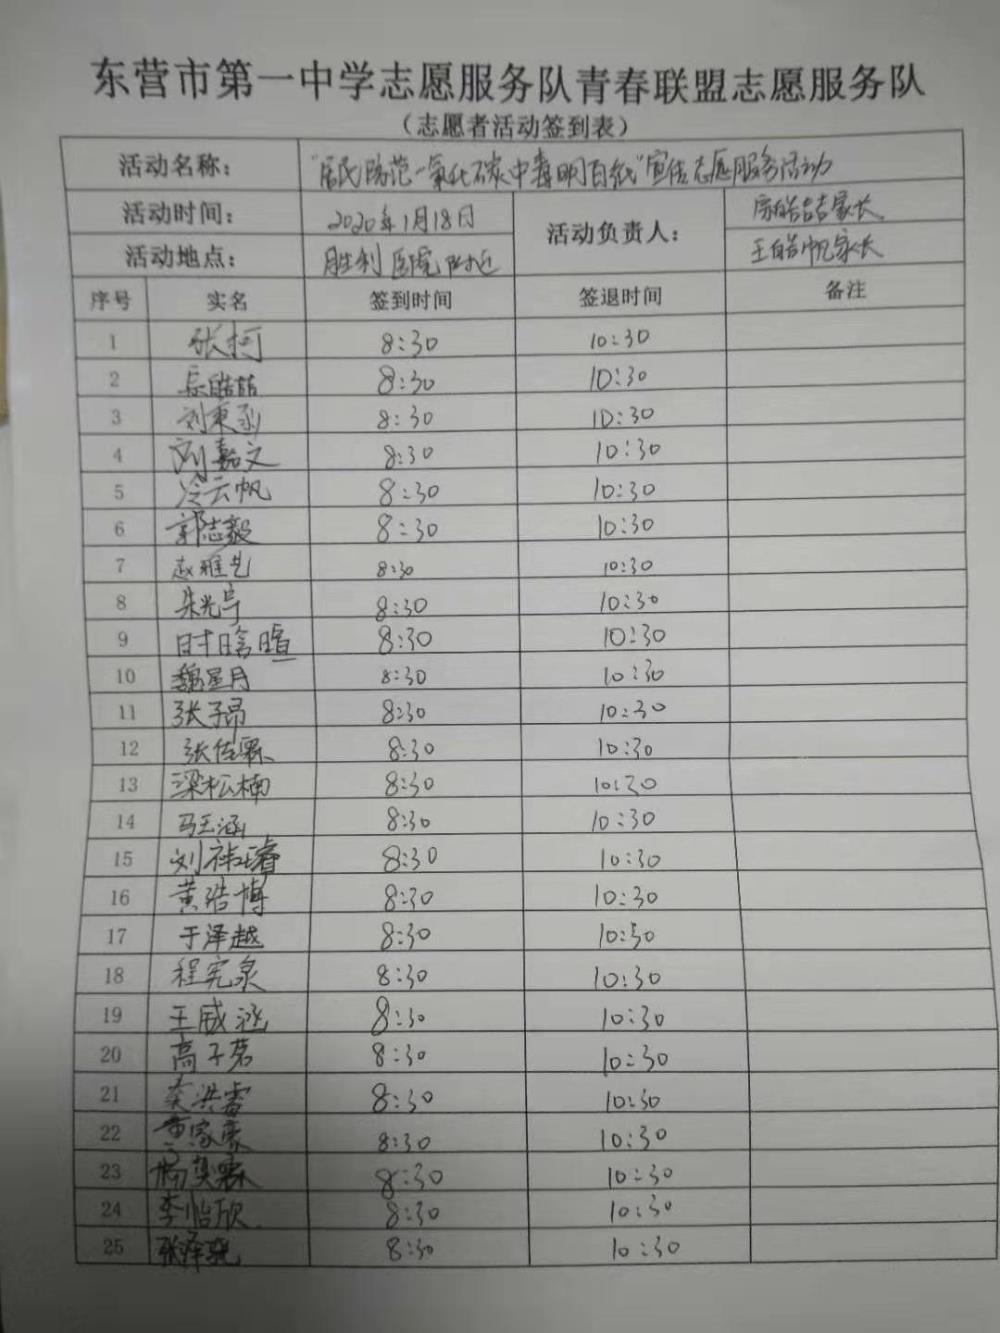 东营市第一中学志愿服务队青春联盟志愿服务队
（志愿者活动签到表）
活动名称： "居民防范一氧化碳中毒明白纸"宣传志愿服务活动
活动时间： 2020年1月18日 活动负责人： 家长
活动地点： 胜利医院附近 王皓帆家长
序号 实名 签到时间 签退时间 备注
1 张柯 8:30 10:30
2 8:30 10:30
3 刘 8:30 10:30
4 刘嘉文 8:30 10:30
5 冷云帆 8:30 10:30
6 郭志毅 8:30 10:30
7 赵雅艺 8:30 10:30
8 朱光宇 8:30 10:30
9 时晗暄 8:30 10:30
10 魏星月 8:30 10:30
11 张子昂 8:30 10:30
12 张佳霖 8:30 10:30
13 梁松楠 8:30 10:30
14 马玉涵 8:30 10:30
15 刘祎璿 8:30 10:30
16 黄浩博 8:30 10:30
17 于泽越 8:30 10:30
18 程宪泉 8:30 10:30
19 王威涵 8:30 10:30
20 高子茗 8:30 10:30
21 秦洪睿 8:30 10:30
22 黄家豪 8:30 10:30
23 杨昊霖 8:30 10:30
24 李怡欣 8:30 10:30
25 张泽 8:30 10:30